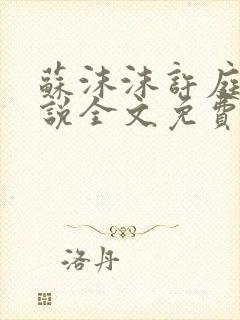 蘇沫沫許庭
說全文免費
洛丹